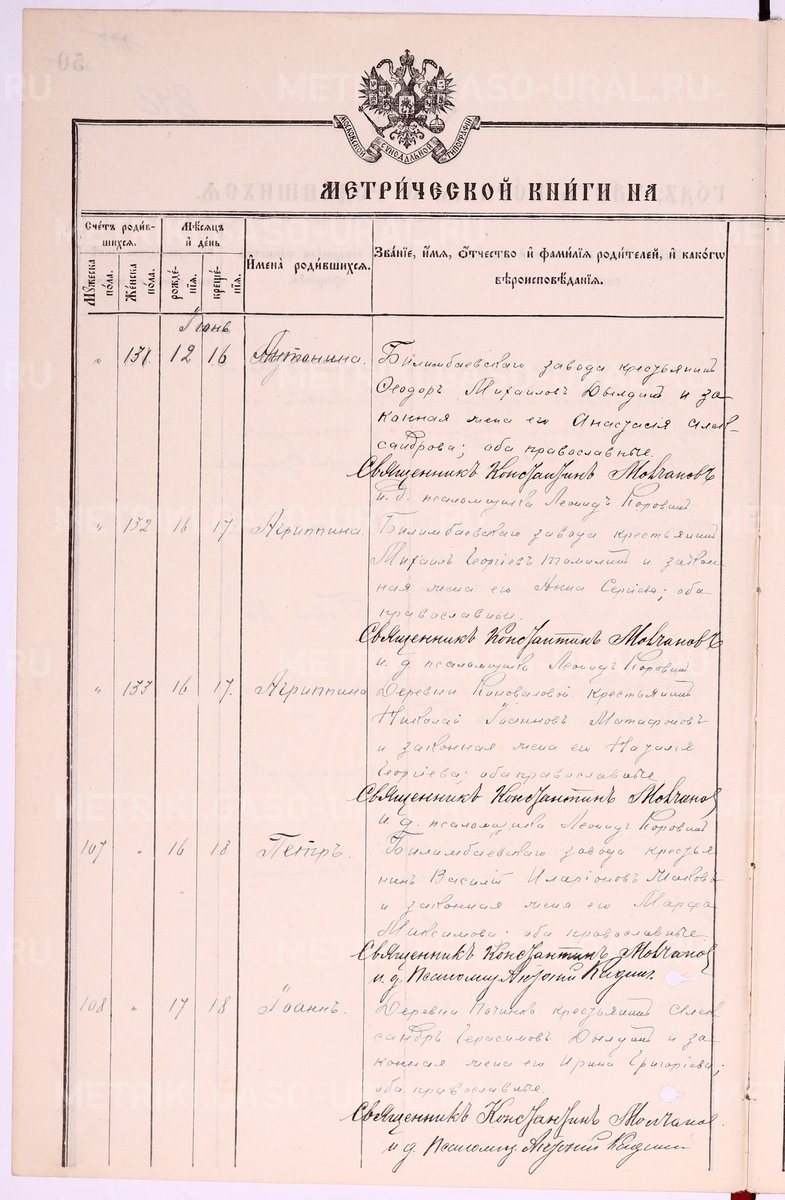 50
METRIKI.GASO-URAL.RU
МОСКОВСКОЙ СѴНОДАЛЬНОЙ ТИПОГРАФІИ
МЕТРИ́ЧЕСКОЙ КНИ́ГИ НА
Сче́тъ роди́в-
шихся.
Мѣ́сяцъ
и҆ де́нь
И҆мена̀ роди́вшихся.
Зва́ніе, и҆́мя, ѻ҆́тчество и҆ фами́лія роди́телей, и҆ како́гѡ
вѣроисповѣ́данія.
Мꙋ́жеска по́ла.
Же́нска по́ла.
рожде́нія.
креще́нія.
Іюнь
" 131 12 16 Антонина.
Билимбаевскаго завода крестьянинъ
Ѳеодоръ Михаиловъ Дылдинъ и за-
конная жена его Анастасія Алек-
сандрова; оба православные.
Священникъ Константинъ Молчановъ
и. д. псаломщика Леонидъ Коровинъ
" 132 16 17. Агриппина.
Билимбаевскаго завода крестьянинъ
Михаилъ Георгіевъ и закон
ная жена его Анна Сергіева; оба
православные.
Священникъ Константинъ Молчановъ
и. д. псаломщика Леонидъ Коровинъ
" 133 16 17. Агриппина
Деревни Коноваловой крестьянинъ
Николай Іоанновъ Матафоновъ
и законная жена его Наталія
Георгіева; оба православные
Священникъ Константинъ Молчановъ
и. д. псаломщика Леонидъ Коровинъ
107 " 16 18 Петръ.
Билимбаевскаго завода крестья
нинъ Василій Иларіоновъ и законная жена его Марфа
Максимова; оба православные
Священникъ Константинъ Молчановъ
и. д. Псаломщ. Андрей
108 " 17 18 Іоаннъ.
Деревни Починка крестьянинъ Алек
сандръ Герасимовъ Дылдинъ и за
конная жена его Ирина Григоріева;
оба православные
Священникъ Константинъ Молчановъ.
и. д. Псаломщ. Андрей